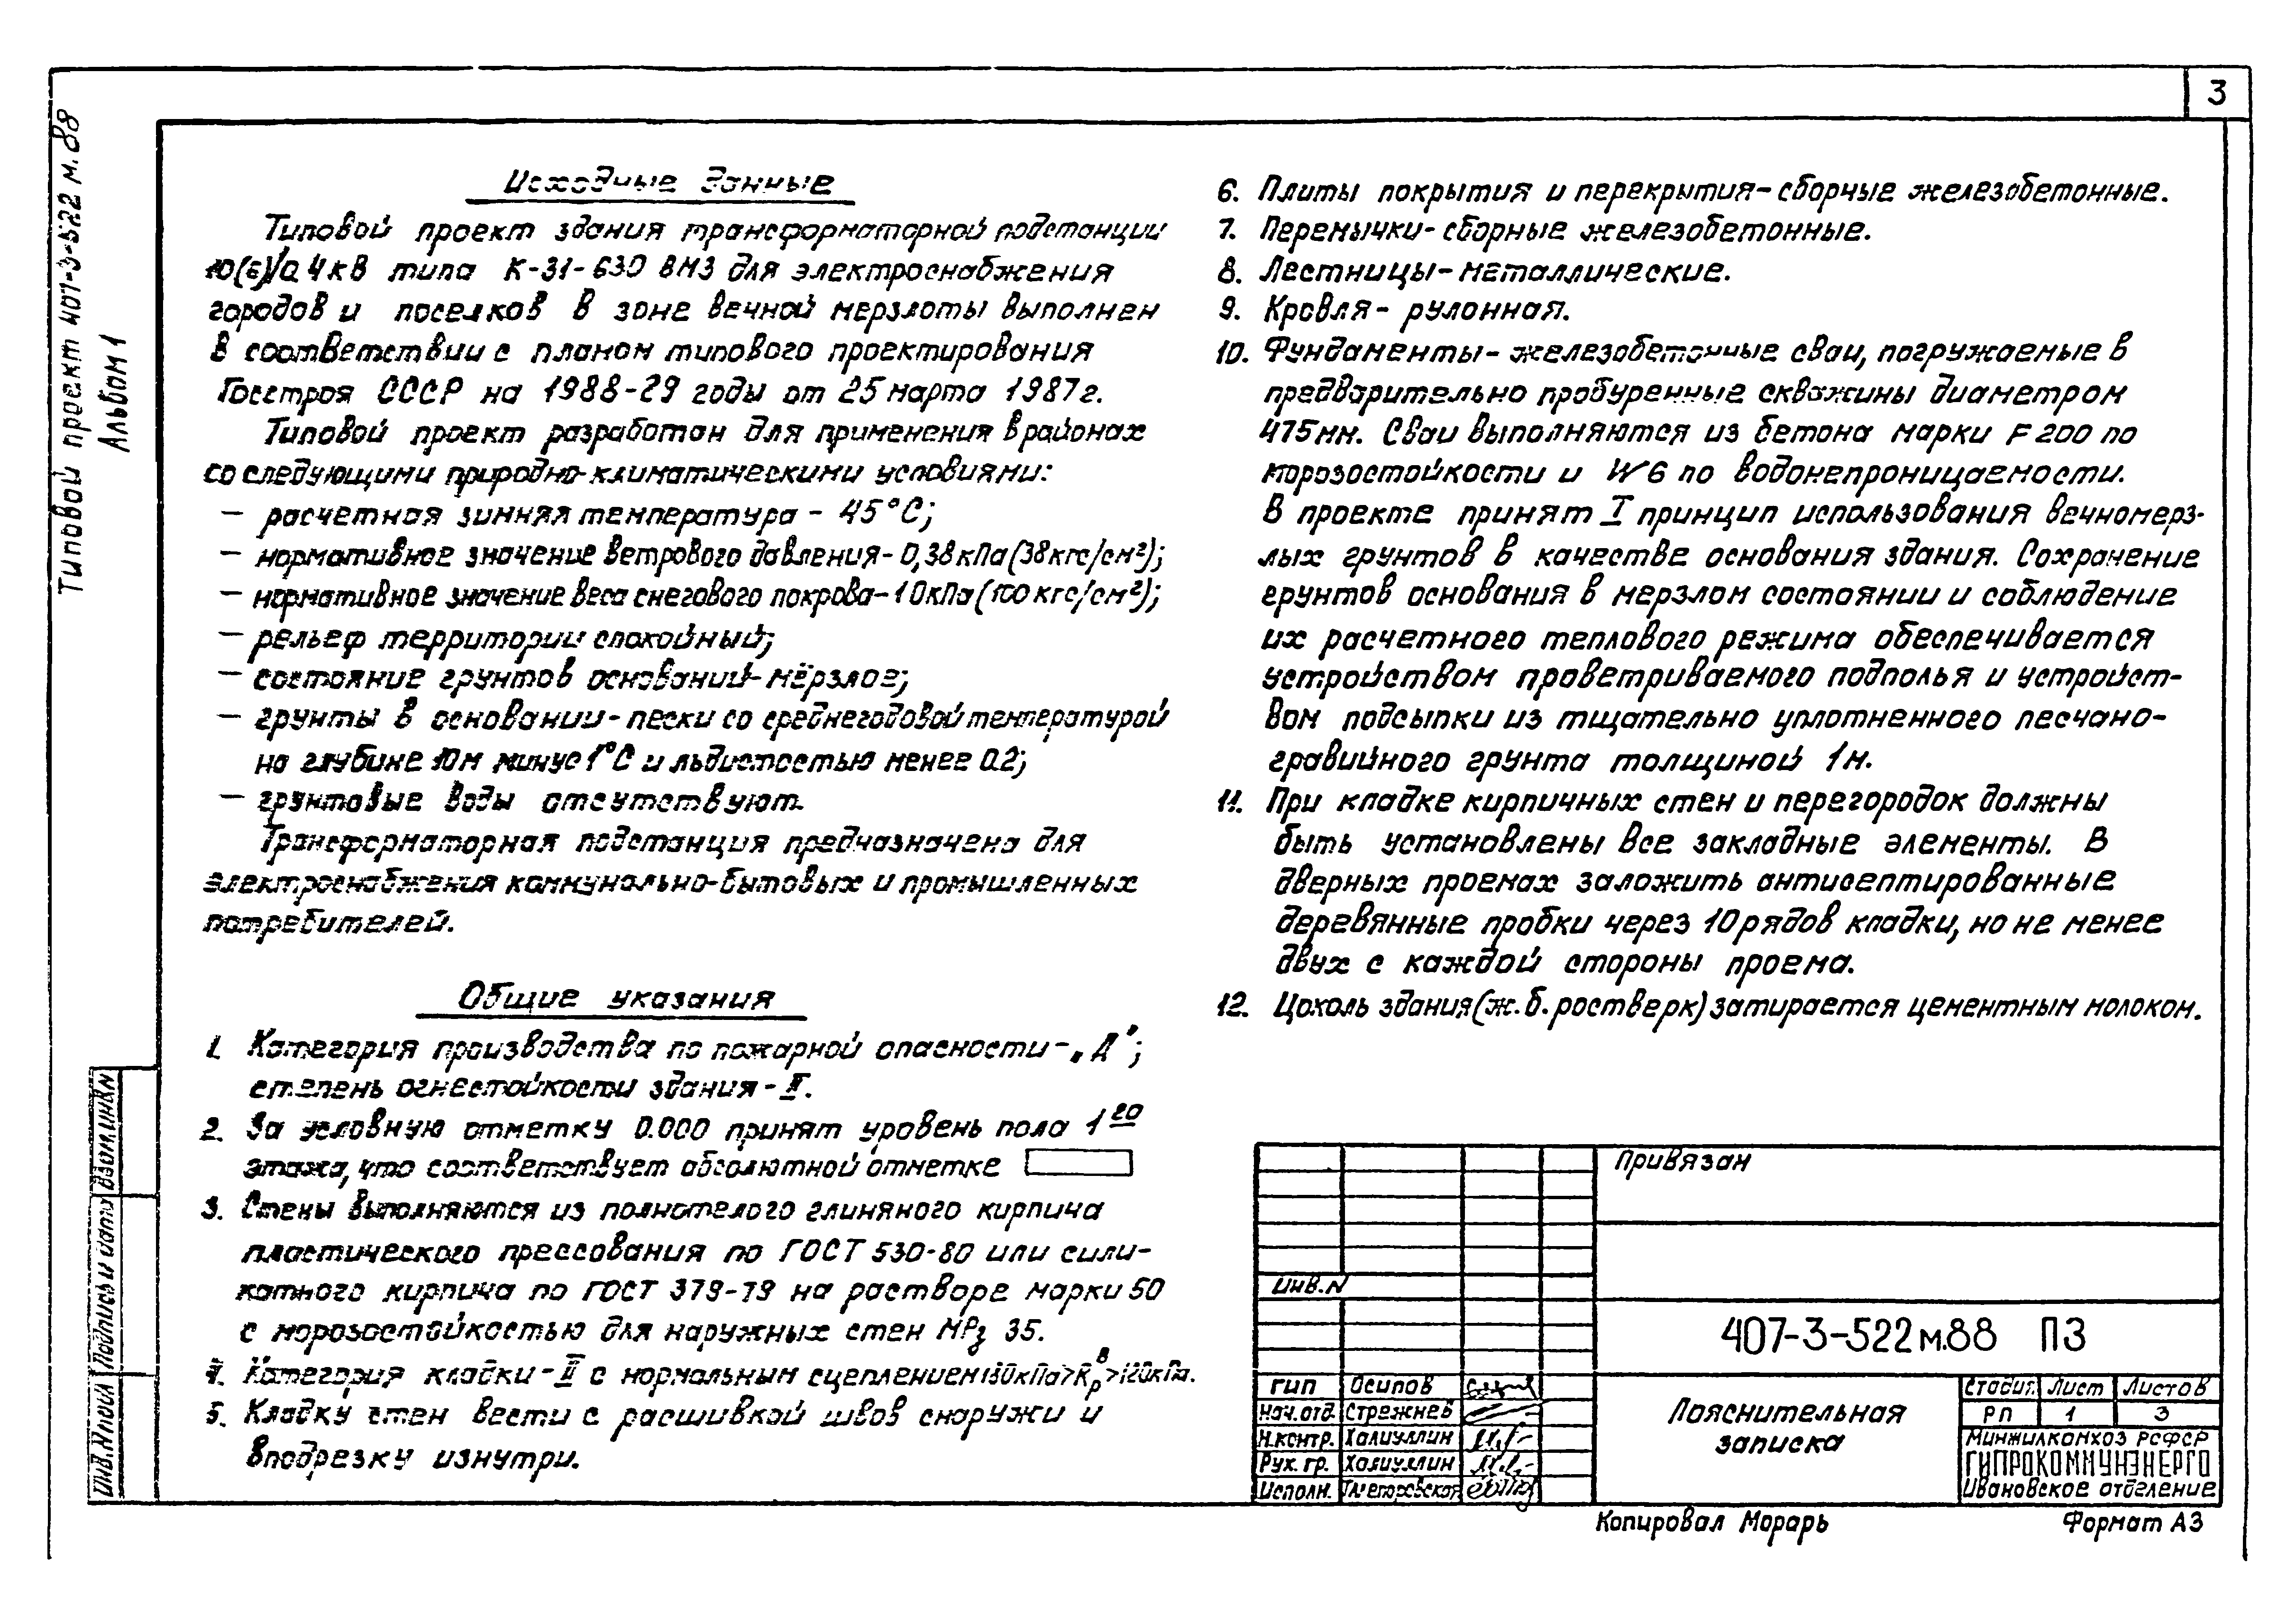 3
Типовой проект 407-3-522 м.88
Альбом 1
Исходные данные
Типовой проект здания трансформаторной подстанции
10(6)/0.4кВ типа К-31-630 ВМЗ для электроснабжения
городов и поселков в зоне вечной мерзлоты выполнен
в соответствии с планом типового проектирования
Госстроя СССР на 1988-29 годы от 25 марта 1987г.
Типовой проект разработан для применения в районах
со следующими природно-климатическими условиями:
– расчетная зимняя температура - 45°С;
– нормативное значение ветрового давления-0,38кПа(38кгс/см²);
– нормативное значение веса снегового покрова-1 0кПа(100кгс/см²);
– рельеф территории спокойный;
– состояние грунтов оснований-мёрзлое;
– грунты в основании-пески со среднегодовой температурой
на глубине 10м минус 1°С и льдистостью менее 0.2;
– грунтовые воды отсутствуют.
Трансформаторная подстанция предназначена для
электроснабжения коммунально-бытовых и промышленных
потребителей.
Общие указания
1. Категория производства по пожарной опасности-„Д";
степень огнестойкости здания-II.
2. За условную отметку 0.000 принят уровень пола 1го
этажа, что соответствует абсолютной отметке
3. Стены выполняются из полнотелого глиняного кирпича
пластического прессования по ГОСТ 530-80 или сили-
катного кирпича по ГОСТ 379-79 на растворе марки 50
с морозостойкостью для наружных стен МРз 35.
4. Категория кладки-II с нормальным сцеплением 180кПа>Rрᵇ>120кПа.
5. Кладку стен вести с расшивкой швов снаружи и
вподрезку изнутри.
6. Плиты покрытия и перекрытия-сборные железобетонные.
7. Перемычки-сборные железобетонные.
8. Лестницы-металлические.
9. Кровля-рулонная.
10. Фундаменты-железобетонные сваи, погружаемые в
предварительно пробуренные скважины диаметром
475мм. Сваи выполняются из бетона марки F200 по
морозостойкости и W6 по водонепроницаемости.
В проекте принят I принцип использования вечномерз-
лых грунтов в качестве основания здания. Сохранение
грунтов основания в мерзлом состоянии и соблюдение
их расчетного теплового режима обеспечивается
устройством проветриваемого подполья и устройст-
вом подсыпки из тщательно уплотненного песчано-
гравийного грунта толщиной 1м.
11. При кладке кирпичных стен и перегородок должны
быть установлены все закладные элементы. В
дверных проемах заложить антисептированные
деревянные пробки через 10 рядов кладки, но не менее
двух с каждой стороны проема.
12. Цоколь здания(ж.б.ростверк) затирается цементным молоком.
Взам.инв.N
Подпись и дата
Инв.Nподл
Привязан
Инв.N
407-3-522м.88 ПЗ
ГИП Осипов
Нач.отд. Стрежнев
Н.контр. Халиуллин
Рук.гр. Халиуллин
Исполн.
Пояснительная
записка
Стадия Лист Листов
РП 1 3
Минжилкомхоз РСФСР
ГИПРОКОММУНЭНЕРГО
Ивановское отделение
Копировал Морарь
Формат А3